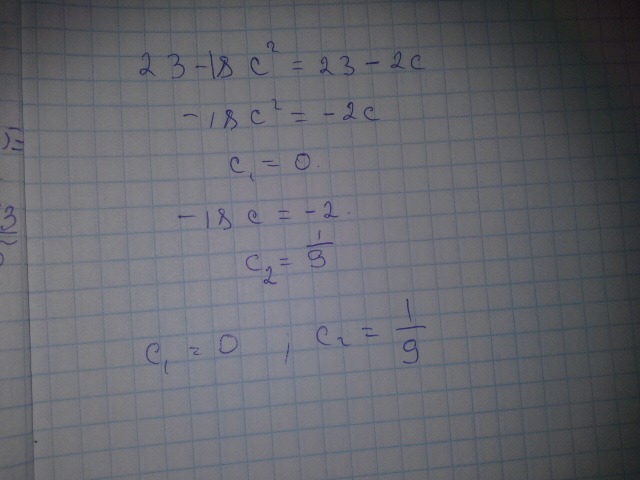 23 - 18c² = 23 - 2c
-18c² = -2c
c₁ = 0.
-18c = -2.
c₂ = 1/9
c₁ = 0 ; c₂ = 1/9